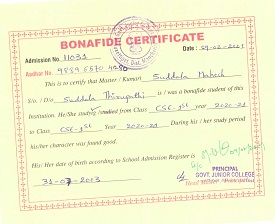 BONAFIDE CERTIFICATE
Admission No. 11031
Aadhar No. 9889 6570
This is to certify that Master / Kumari Suddala Mahesh
S/o. / D/o Suddala Thirupathi is / was a bonafide student of this
Institution. He/She studied from Class CSE-1st year 2020-21
to Class CSE-1st Year 2020-21 During his / her study period
his/her character was found good.
His / Her date of birth according to School Admission Register is
31-07-2003
PRINCIPAL
GOVT. JUNIOR COLLEGE